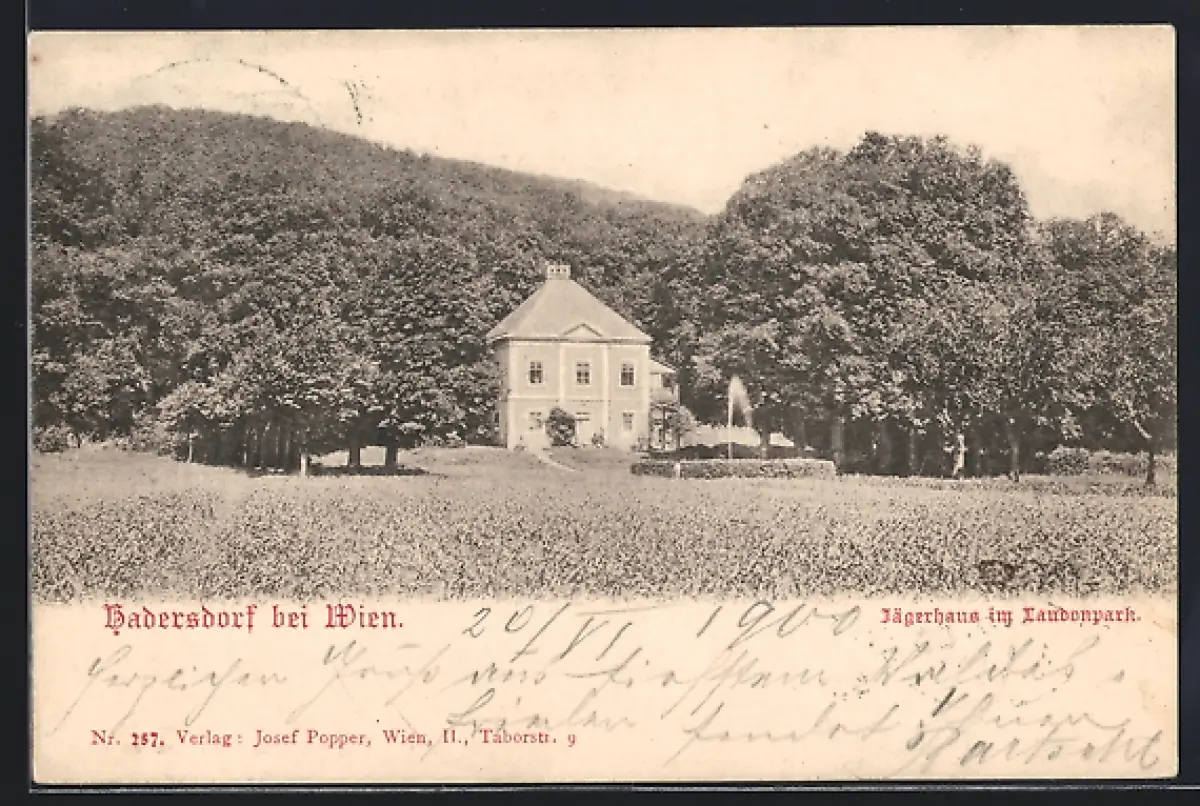 Hadersdorf bei Wien.
Jägerhaus im Laudonpark.
20/VI 1900
Herzlichen Gruß aus tiefstem Waldes-
frieden sendet
Nr. 257. Verlag: Josef Popper, Wien, II., Taborstr. 9